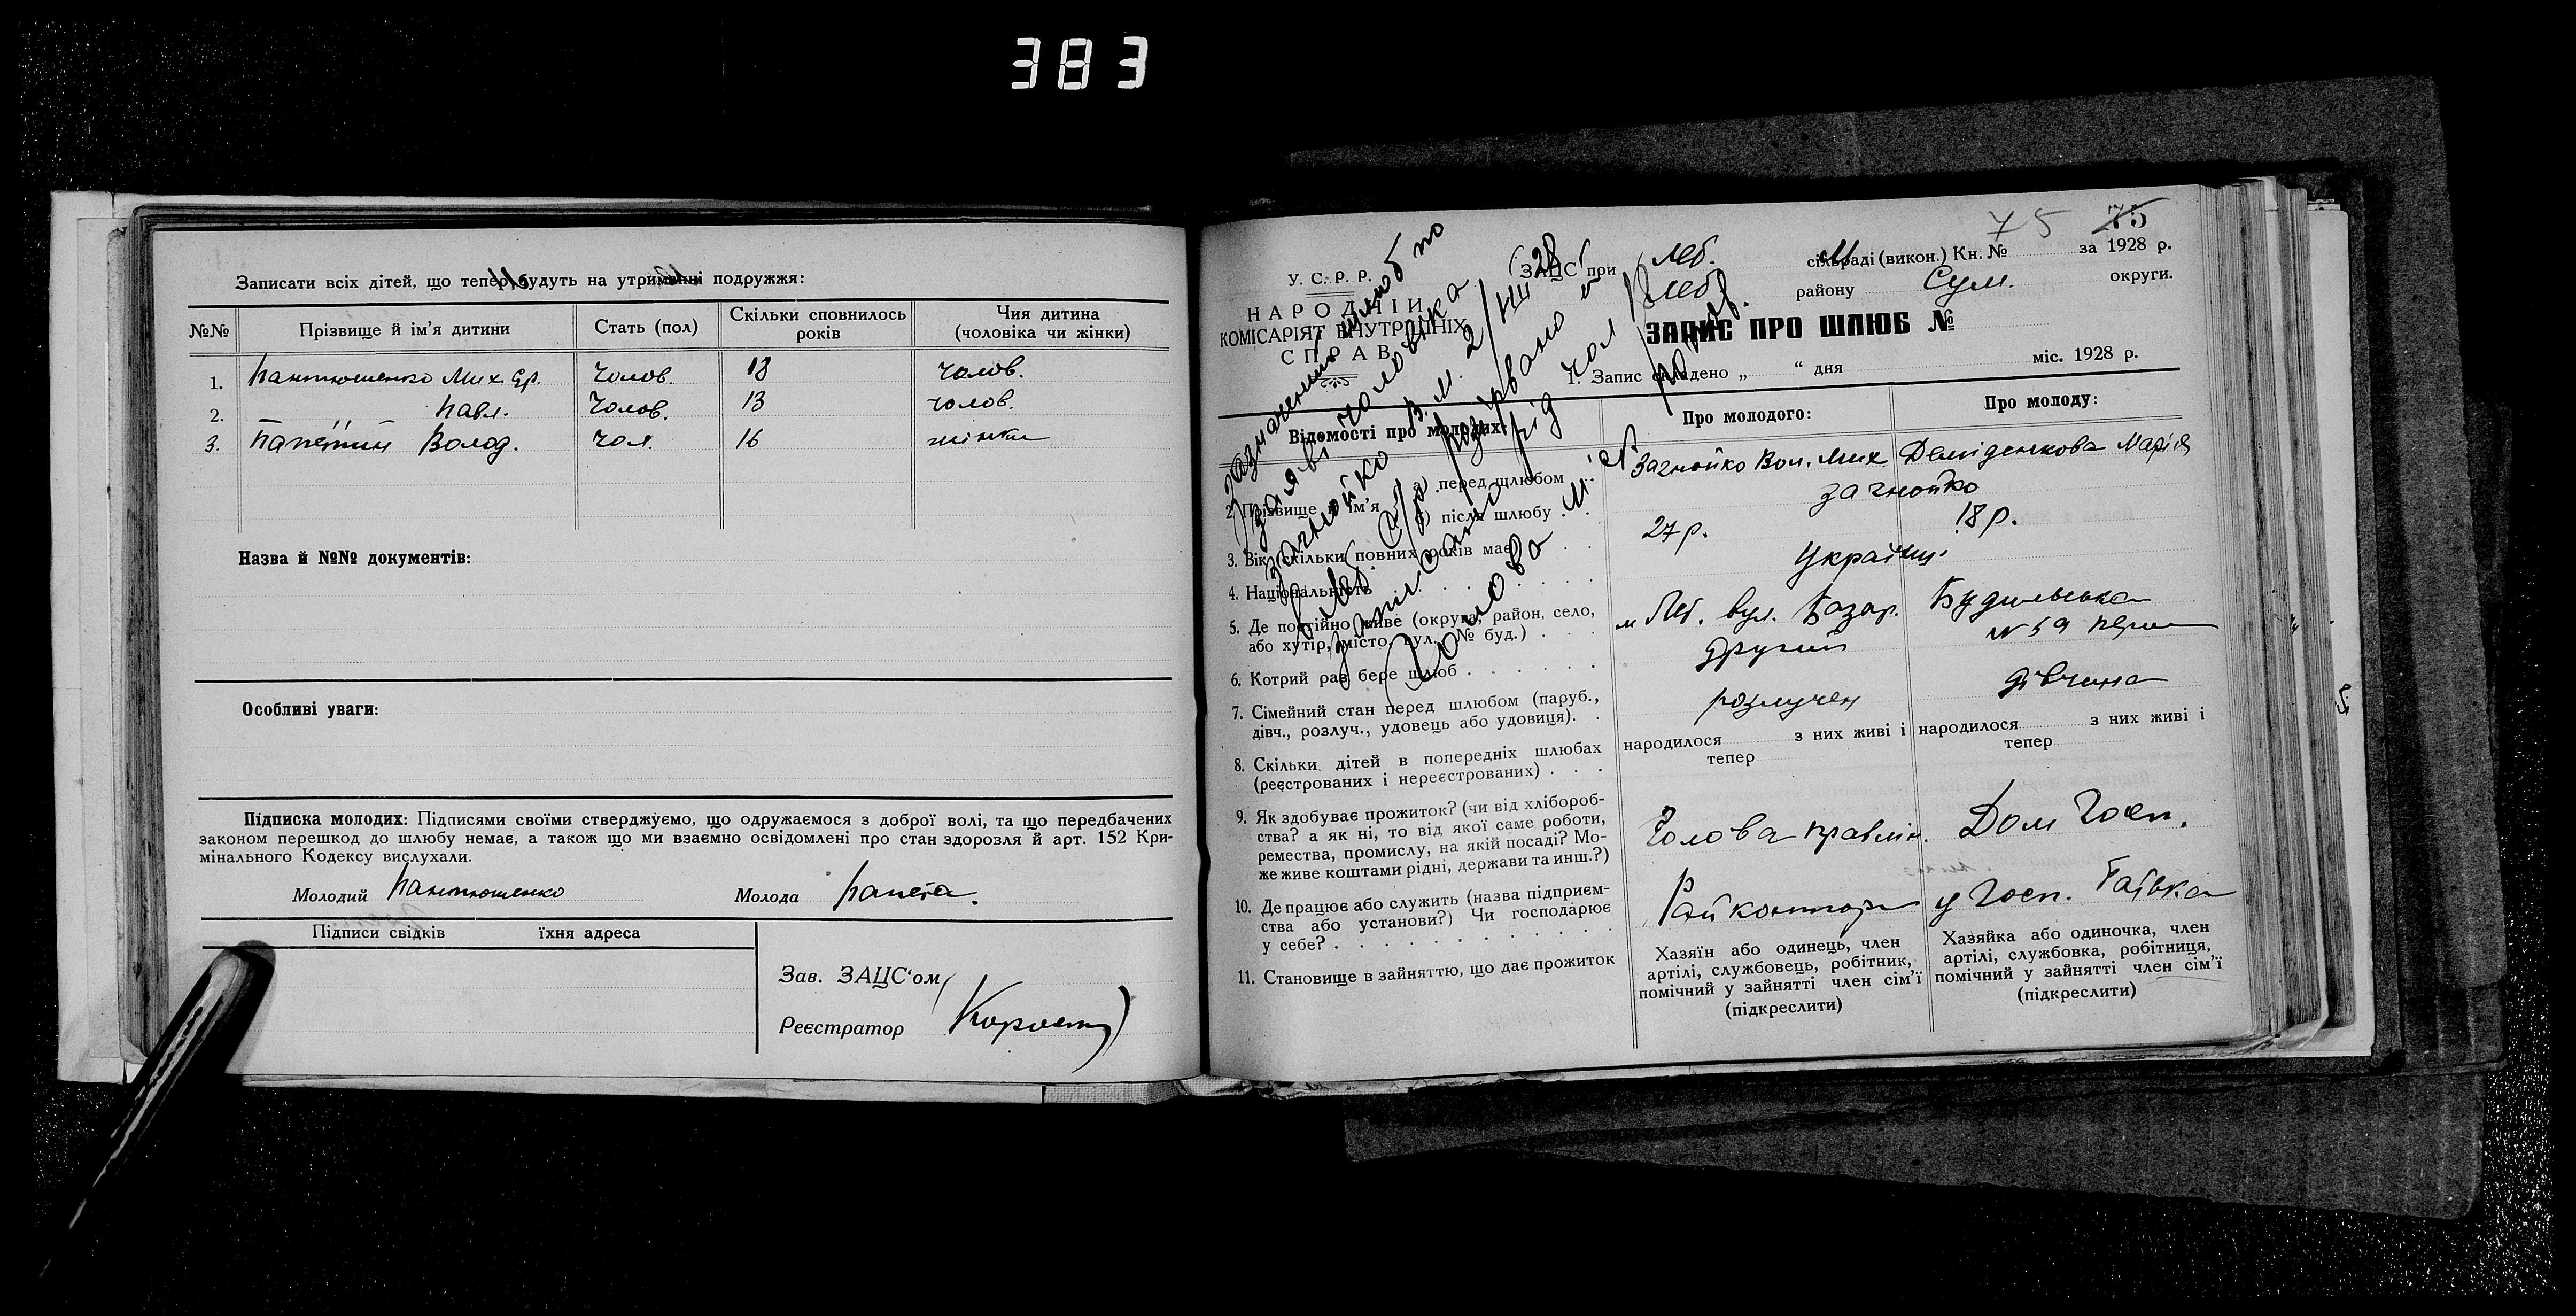 383
Записати всіх дітей, що тепер будуть на утриманні подружжя:
№№ Прізвище й ім'я дитини Стать (пол) Скільки сповнилось років Чия дитина (чоловіка чи жінки)
1. Пантюшенко Мих Чолов. 18 чолов.
2. " Павл. Чолов. 13 чолов.
3. Волод. чол. 16 жінки
Назва й №№ документів:
Особливі уваги:
Підписка молодих: Підписами своїми стверджуємо, що одружаємося з доброї волі, та що передбачених
законом перешкод до шлюбу немає, а також що ми взаємно освідомлені про стан здоровля й арт. 152 Кри-
мінального Кодексу вислухали.
Молодий Пантюшенко Молода
Підписи свідків їхня адреса
Зав. ЗАЦС'ом
Реєстратор
75 75
У. С. Р. Р.
НАРОДНІЙ
КОМІСАРІЯТ ВНУТРІШНІХ
СПРАВ
ЗАЦС при Леб. сільраді (викон.) Кн. № за 1928 р.
Леб району Сум. округи.
ЗАПИС ПРО ШЛЮБ №
1. Запис складено „ “ дня міс. 1928 р.
Зазначений шлюб по
заяві чоловіка
Загнойко
розірвано
Голова
Відомості про молодих: Про молодого: Про молоду:
2. Прізвище й ім'я а) перед шлюбом Загнойко Вол. Мих Демиденкова Марія
б) після шлюбу Загнойко
3. Вік (скільки повних років має) 27 р. 18 р.
4. Національність Українці
5. Де постійно живе (округа, район, село,
або хутір, місто, вул., № буд.) м Леб. вул. Базар. Будильська
№ 59
6. Котрий раз бере шлюб другий перш
7. Сімейний стан перед шлюбом (паруб.,
дівч., розлуч., удовець або удовиця). розлучен дівчина
8. Скільки дітей в попередніх шлюбах
(реєстрованих і нереєстрованих) народилося з них живі і тепер народилося з них живі і тепер
9. Як здобуває прожиток? (чи від хлібороб-
ства? а як ні, то від якої саме роботи,
ремества, промислу, на якій посаді? Мо-
же живе коштами рідні, держави та инш.?) Голова правлін. Дом Госп.
10. Де працює або служить (назва підприєм-
ства або установи?) Чи господарює
у себе? Райконтора у Госп. Батька
11. Становище в зайняттю, що дає прожиток
Хазяїн або одинець, член
артілі, службовець, робітник,
помічний у зайнятті член сім'ї
(підкреслити)
Хазяйка або одиночка, член
артілі, службовка, робітниця,
помічний у зайнятті член сім'ї
(підкреслити)